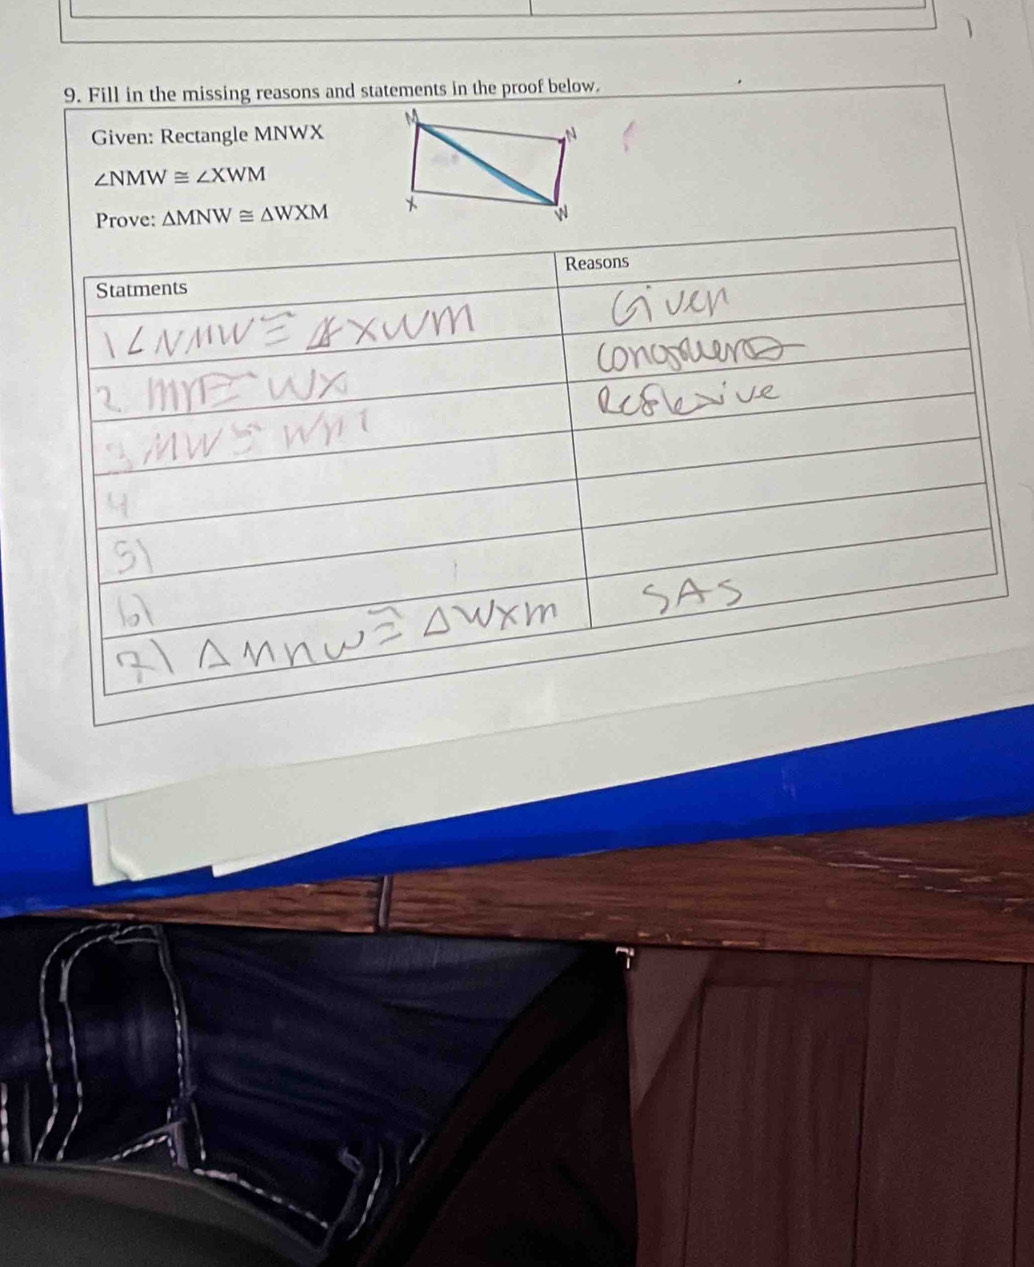 9. Fill in the missing reasons and statements in the proof below.
Given: Rectangle MNWX
∠NMW ≅ ∠XWM
Prove: ΔMNW ≅ ΔWXM
M
N
X
W
Statments
Reasons
1 ∠NMW ≅ ∡XWM
Given
2. ≅ WX
3 MW ≅ WM
Reflexive
4
5)
6)
7) Δ MnW ≅ ΔWXM
SAS